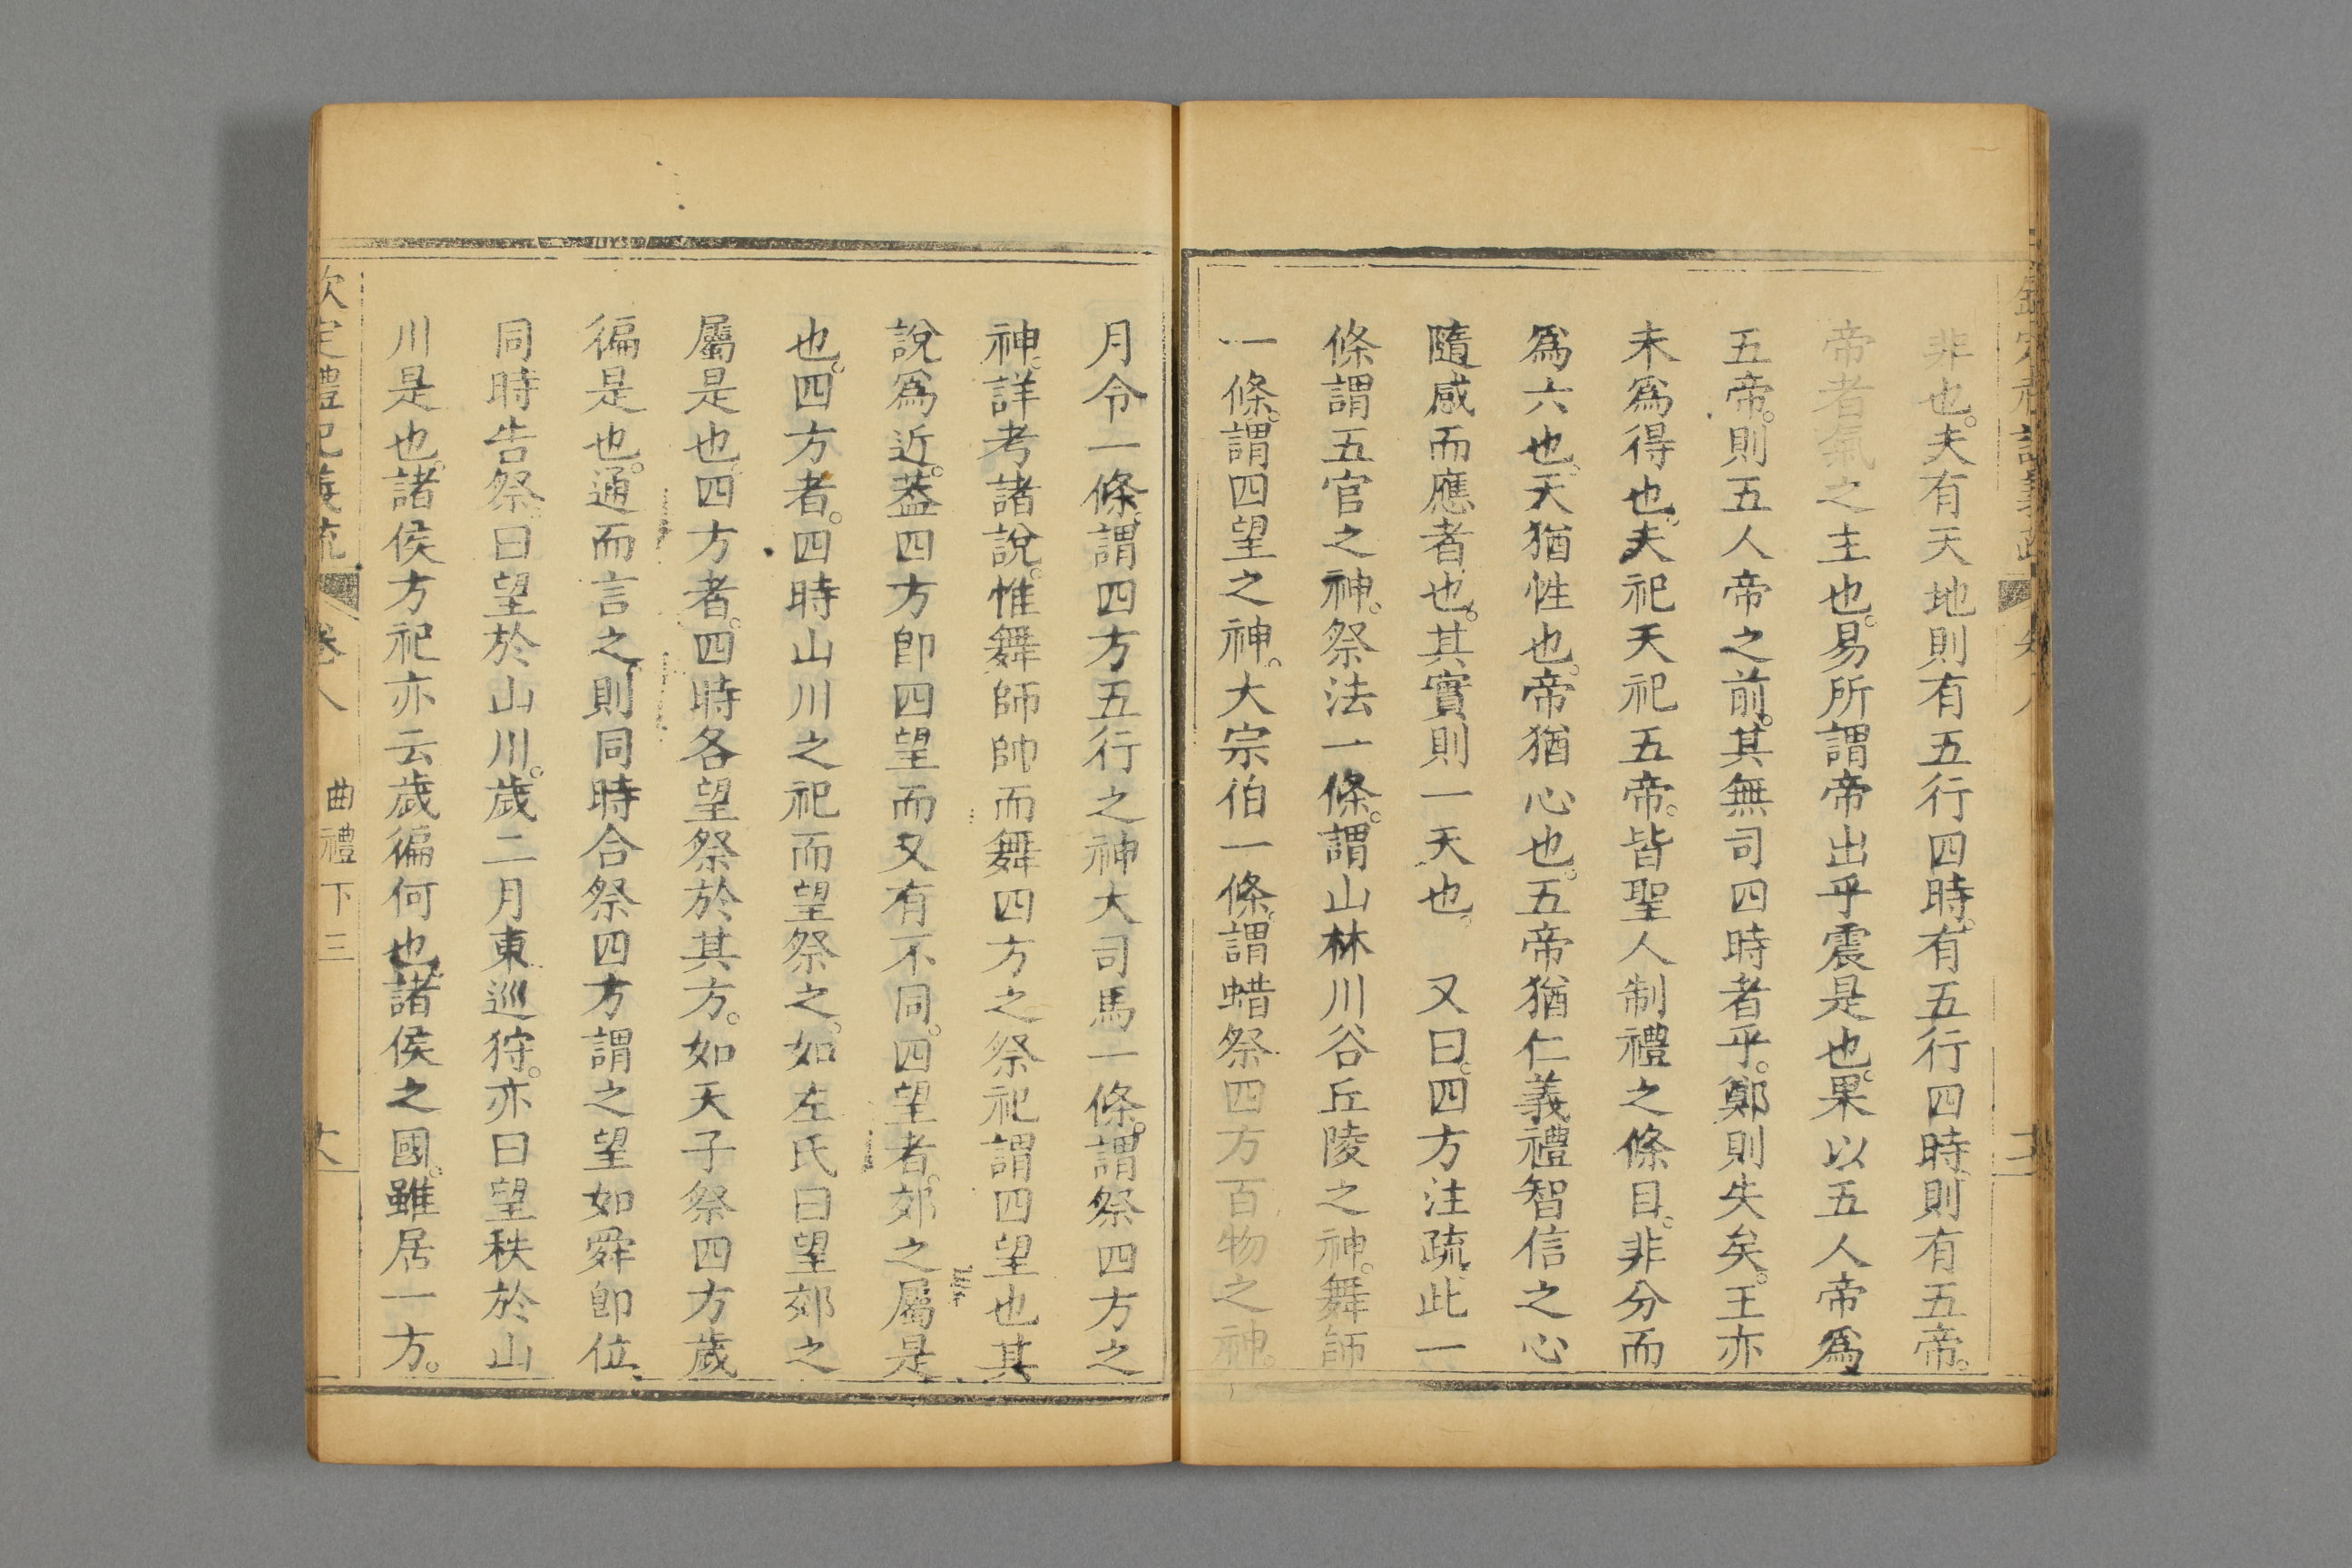 非也。夫有天地則有五行四時。有五行四時則有五帝。
帝者氣之主也。易所謂帝出乎震是也。果以五人帝爲
五帝。則五人帝之前。其無司四時者乎。鄭則失矣。王亦
未爲得也。夫祀天祀五帝。皆聖人制禮之條目。非分而
爲六也。天猶性也。帝猶心也。五帝猶仁義禮智信之心
隨感而應者也。其實則一天也。 又曰。四方注疏。此一
條謂五官之神。祭法一條。謂山林川谷丘陵之神。舞師
一條。謂四望之神。大宗伯一條。謂蜡祭四方百物之神。
月令一條。謂四方五行之神大司馬一條。謂祭四方之
神。詳考諸說。惟舞師帥而舞四方之祭祀謂四望也其
說爲近。葢四方卽四望而又有不同。四望者。郊之屬是
也。四方者。四時山川之祀而望祭之。如左氏曰望郊之
屬是也四方者。四時各望祭於其方。如天子祭四方歲
徧是也。通而言之。則同時合祭四方謂之望如舜卽位
同時告祭。曰望於山川。歲二月東巡狩。亦曰望秩於山
川是也。諸侯方祀亦云歲徧何也。諸侯之國。雖居一方。
欽定禮記義疏 卷八 曲禮下三